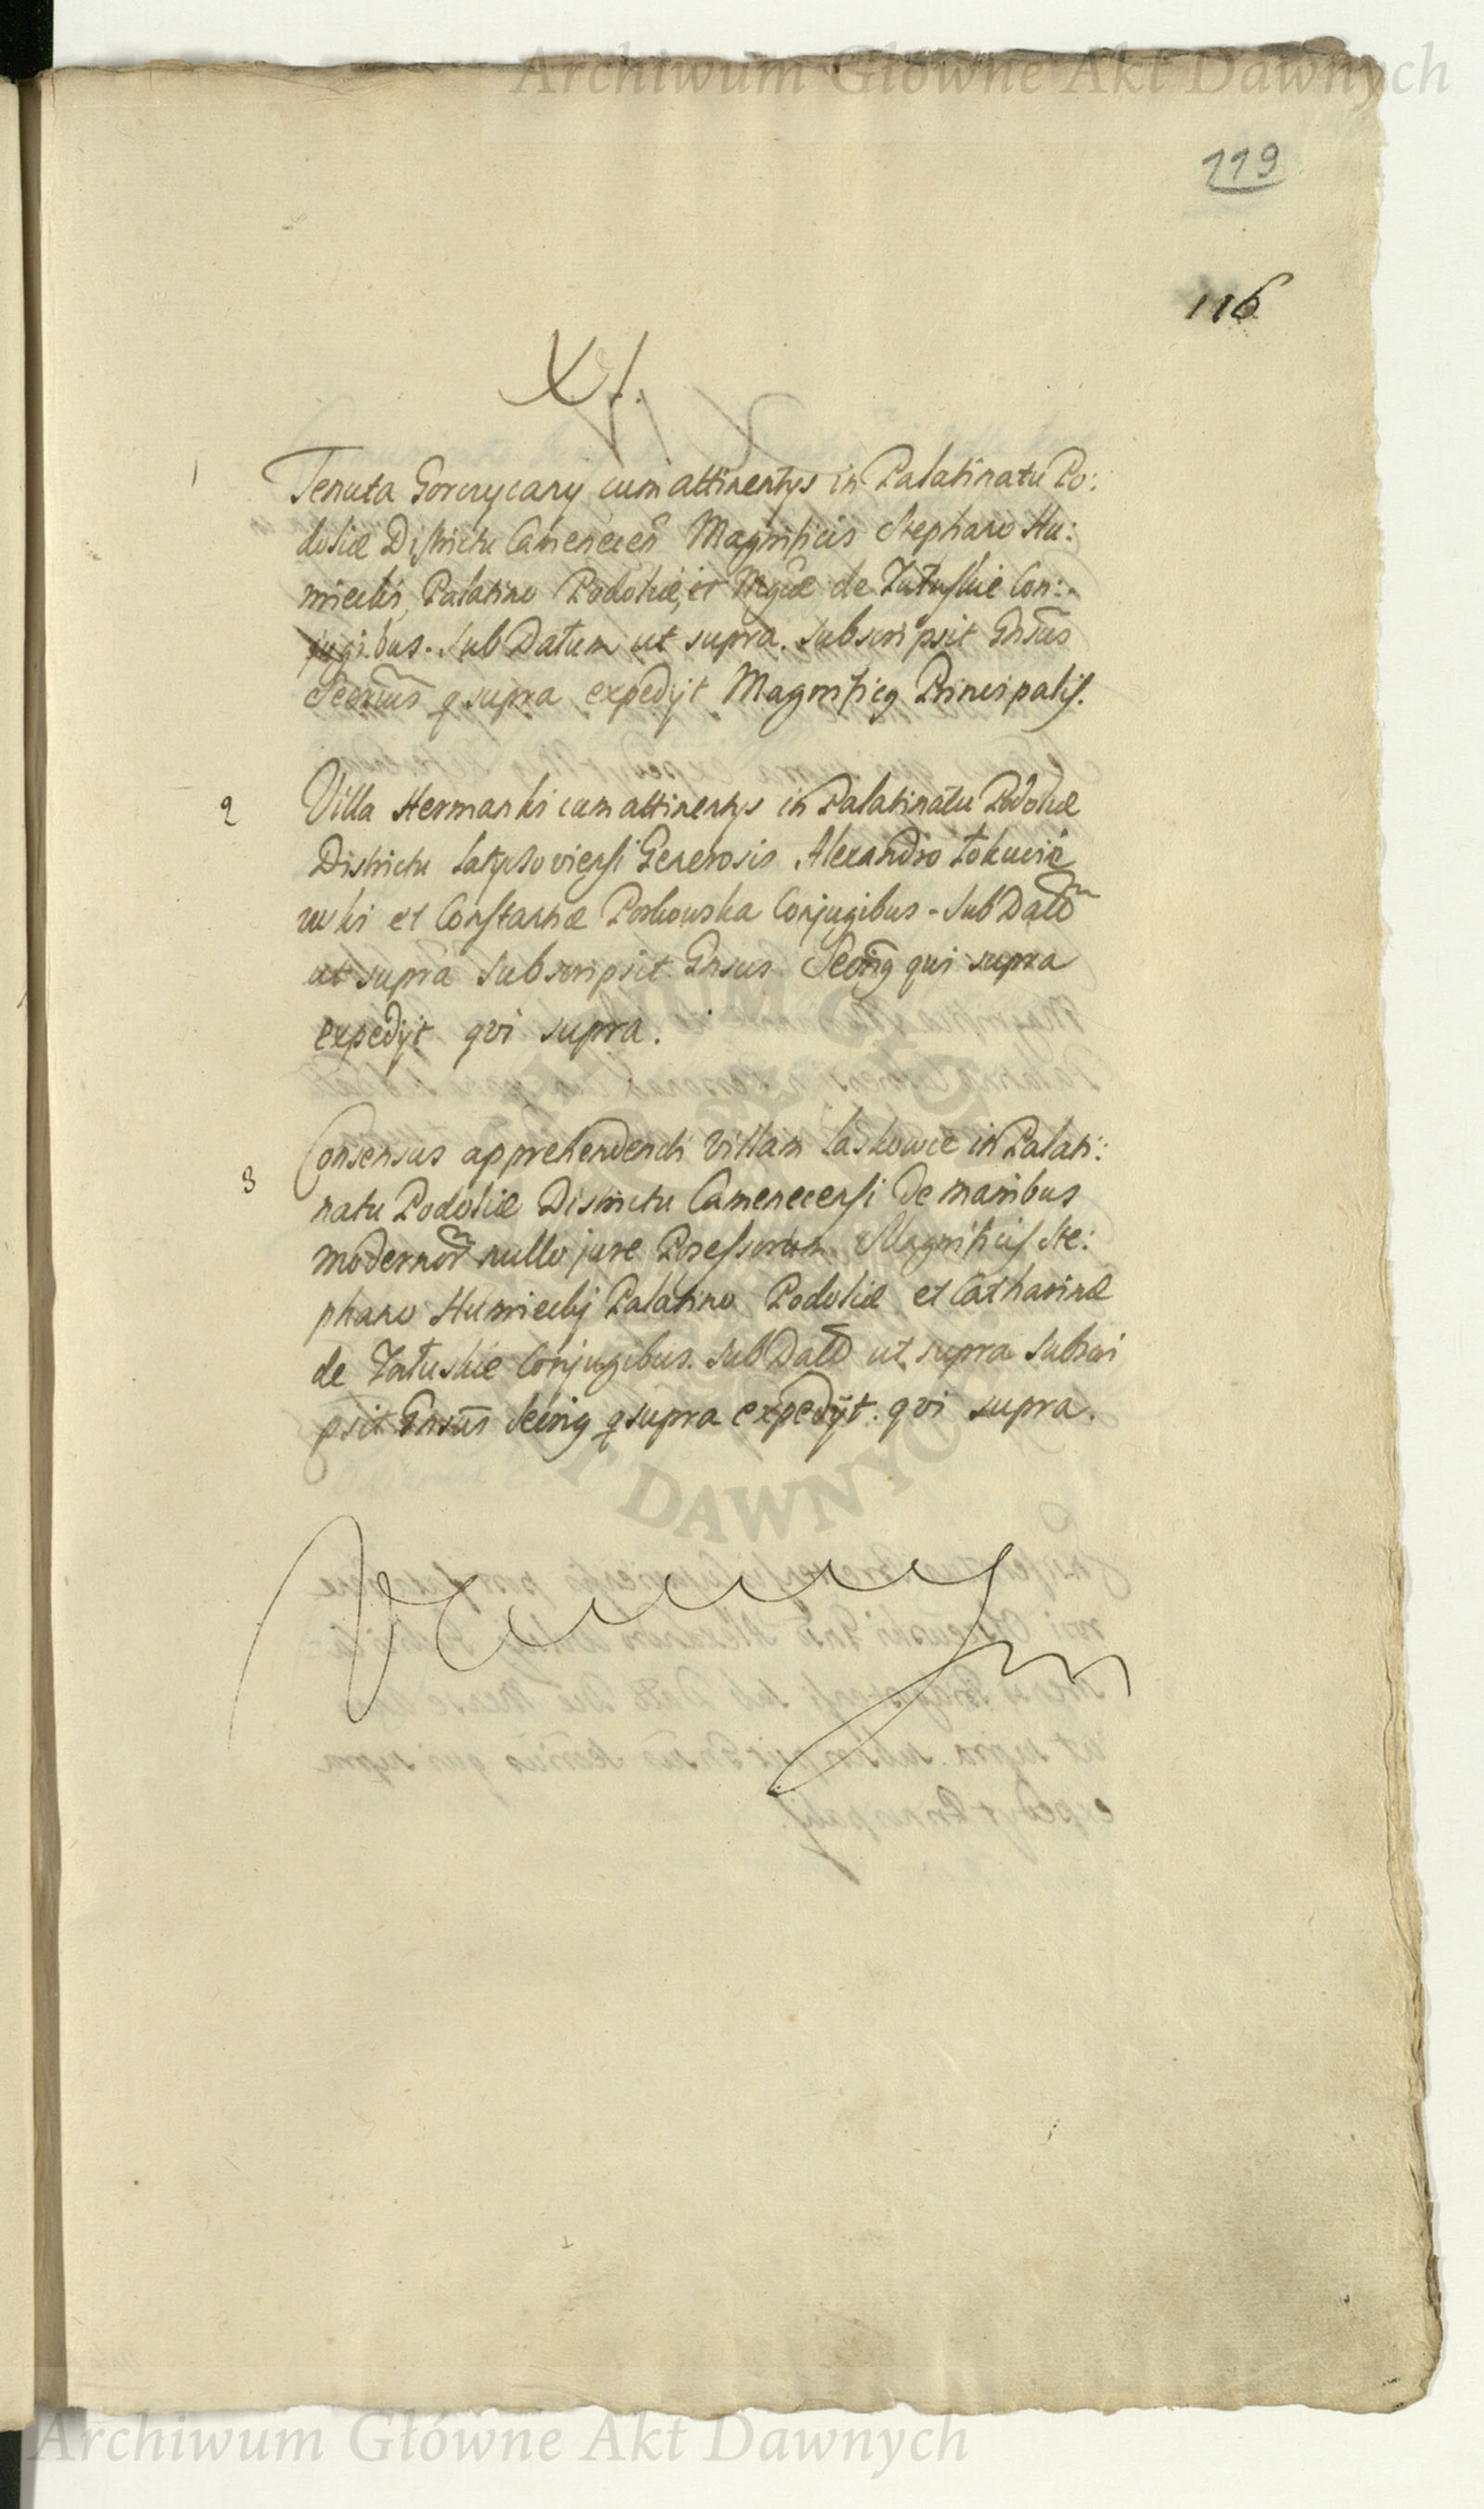 Archiwum Główne Akt Dawnych
119
116
XI.
1 Tenuta Gorczyczny cum attinentys in Palatinatu Po:
doliæ Districtu Camenecen Magnificis Stephano Hu:
miecki, Palatino Podoliæ, et de Zatuskie Con:
jugibus. Sub Datum ut supra. Subscripsit Gnsus
Secrius q supra expedyt Magnificg Principalis.
2 Villa Hermanki cum attinentys in Palatinatu Podoliæ
Districtu Latyczoviensi Generosis Alexandro
wski et Constantiæ Conjugibus - Sub Datō
ut supra Subscripsit Gnsus Secrig qui supra
expedyt qvi supra.
3 Consensus apprehendendi Villam Laskowce in Palati:
natu Podoliæ Districtu Camenecensi De manibus
modernor nullo jure Possessorum Magnificis Ste:
phano Humieckij Palatino Podoliæ et Catharinæ
de Zatuskie Conjugibus. Sub Datō ut supra Subscri
psit Gnsus Secrig q supra expedyt. qvi supra.
Archiwum Główne Akt Dawnych